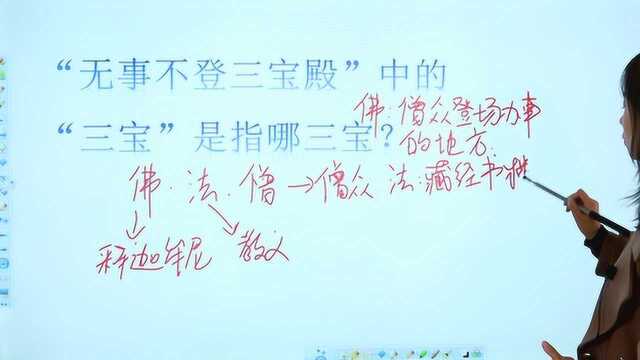 “无事不登三宝殿”中的
佛:僧众登场办事
“三宝”是指哪三宝?
的地方.
佛.法.僧→僧众 法:藏经书
释迦牟尼 教义